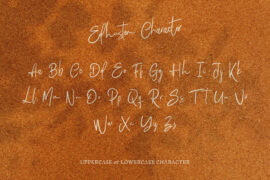 Edhuston Character
Aa Bb Cc Dd Ee Ff Gg Hh Ii Jj Kk
Ll Mm Nn Oo Pp Qq Rr Ss Tt Uu Vv
Ww Xx Yy Zz
UPPERCASE & LOWERCASE CHARACTER